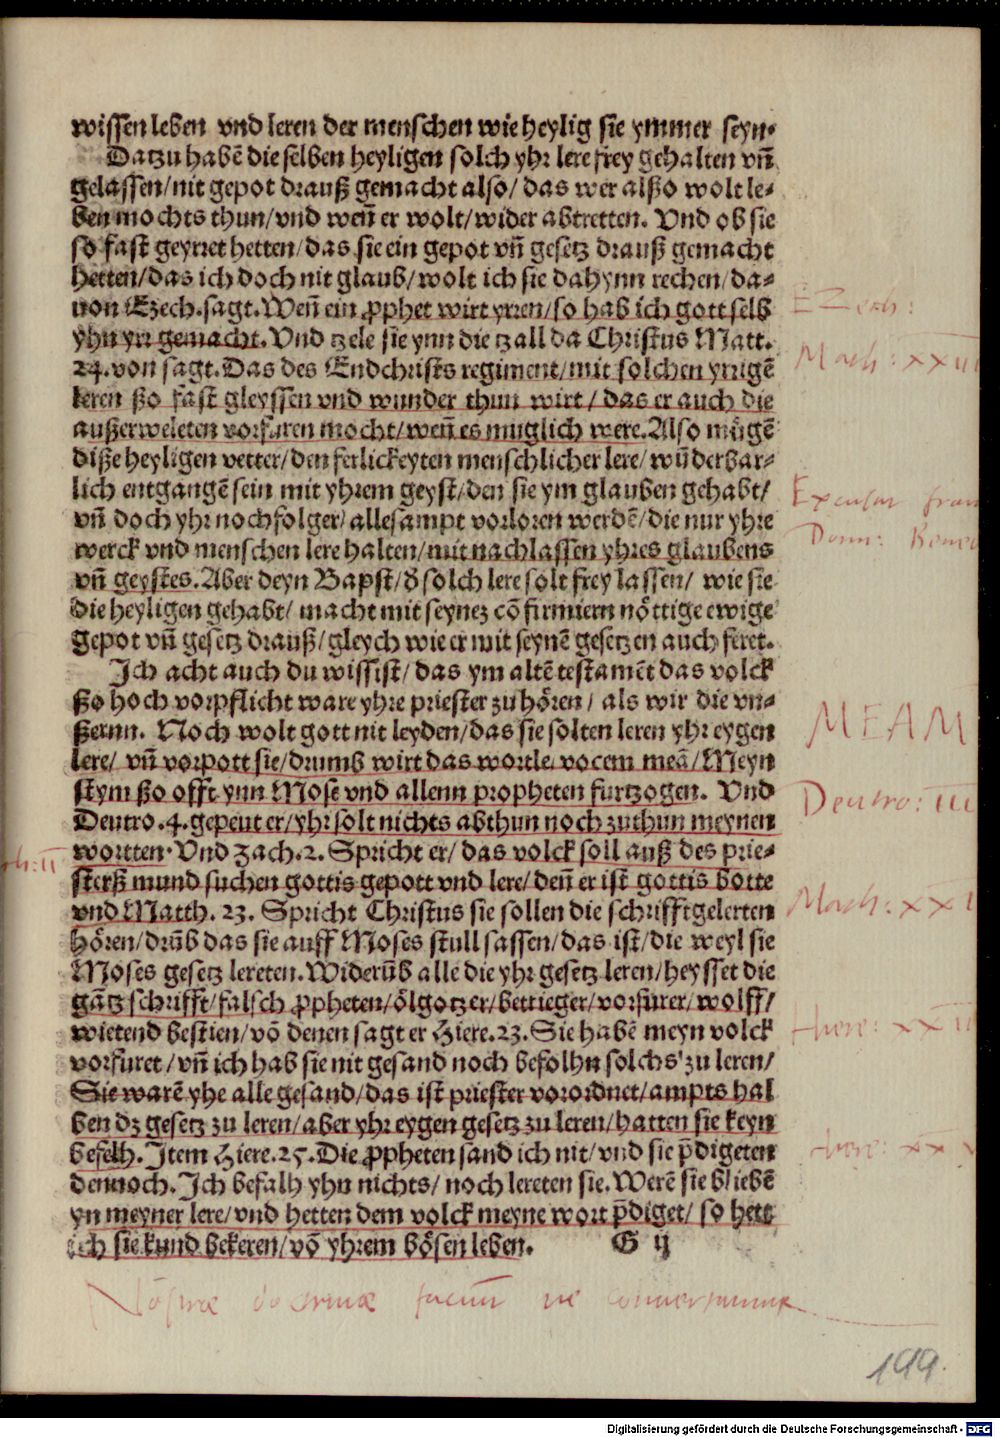 wissen leben vnd leren der menschen wie heylig sie ymmer seyn.
Datzu habē die selben heyligen solch yhr lere frey gehalten vñ
gelassen/nit gepot drauß gemacht also/ das wer alßo wolt le-
ben mochts thun/vnd weñ er wolt/wider abtretten. Vnd ob sie
so fast geyrret hetten/das sie ein gepot vñ gesetz drauß gemacht
hetten/das ich doch nit glaub/wolt ich sie dahynn rechen/da-
uon Ezech.sagt.Weñ ein ꝓphet wirt yrren/so hab ich gott selb
yhn yrr gemacht.Vnd tzele sie ynn die tzall da Christus Matt.
24.von sagt.Das des Endchrists regiment/mit solchen yrrigē
leren ßo fast gleyssen vnd wunder thun wirt/das er auch die
außerweleten vorfuren mocht/weñ es muglich were.Also mügē
diße heyligen vetter/den ferlickeyten menschlicher lere/wūderbar-
lich entgangē sein mit yhrem geyst/den sie ym glauben gehabt/
vñ doch yhr nochfolger/allesampt vorloren werdē/die nur yhre
werck vnd menschen lere halten/mit nachlassen yhres glaubens
vñ geystes.Aber deyn Bapst/ď solch lere solt frey lassen/ wie sie
die heyligen gehabt/ macht mit seynez cōfirmiern nöttige ewige
gepot vñ gesetz drauß/gleych wie er mit seynē gesetzen auch feret.
Ich acht auch du wissist/das ym altē testamēt das volck
ßo hoch vorpflicht ware yhre priester zu hören/ als wir die vn-
ßernn. Noch wolt gott nit leyden/das sie solten leren yhr eygen
lere/ vñ vorpott sie/drumb wirt das wortle vocem meā/Meyn
stym ßo offt ynn Mose vnd allenn propheten furtzogen. Vnd
Deutro.4.gepeut er/yhr solt nichts abthun noch zuthun meynen
wortten.Vnd Zach.2.Spricht er/das volck soll auß des prie-
sterß mund suchen gottis gepott vnd lere/deñ er ist gottis botte
vnd Matth. 23. Spricht Christus sie sollen die schrifftgelerten
hören/drūb das sie auff Moses stull sassen/das ist/die weyl sie
Moses gesetz lereten.Widerūb alle die yhr gesetz leren/heysset die
gātz schrifft/falsch ꝓpheten/ölgotzer/bettieger/vorfürer/wolff/
wietend bestien/vō denen sagt er Hiere.23.Sie habē meyn volck
vorfuret/vñ ich hab sie nit gesand noch befolhn solchs zu leren/
Sie warē yhe alle gesand/das ist priester vorordnet/ampts hal
ben dz gesetz zu leren/aber yhr eygen gesetz zu leren/hatten sie keyn
befelh.Item Hiere.25.Die ꝓpheten sand ich nit/vnd sie p̄digeten
dennoch.Ich befalh yhn nichts/noch lereten sie.Werē sie bliebē
yn meyner lere/vnd hetten dem volck meyne wort p̄diget/ so hett
ich sie kund bekeren/vō yhrem bösen leben. G ij
EZech:
Math: xxii
MEAM
Deutro: iii
Math: xxi
hiere: xxii
hiere: xx
199.
Digitalisierung gefördert durch die Deutsche Forschungsgemeinschaft - DFG